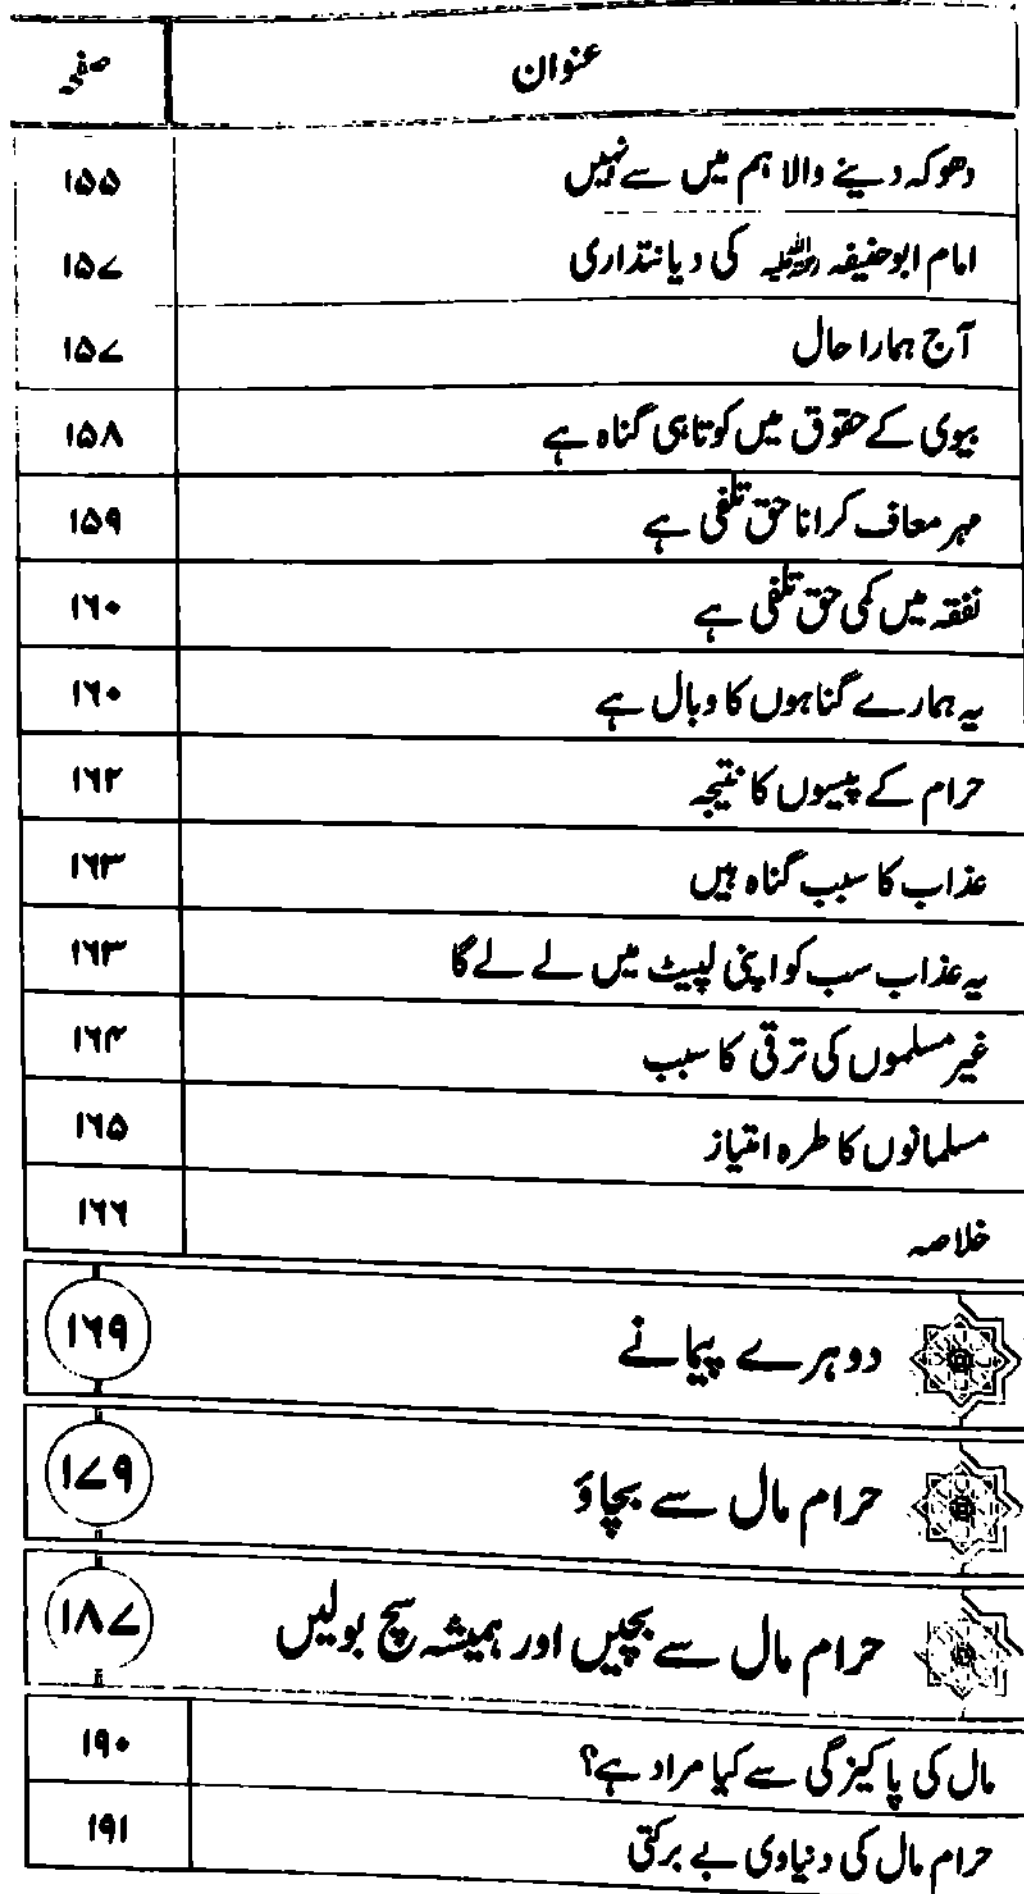 عنوان صفحہ
دھوکہ دینے والا ہم میں سے نہیں ۱۵۵
امام ابوحنیفہ رحمۃ اللہ علیہ کی دیانتداری ۱۵۷
آج ہمارا حال ۱۵۷
بیوی کے حقوق میں کوتاہی گناہ ہے ۱۵۸
مہر معاف کرانا حق تلفی ہے ۱۵۹
نفقہ میں کمی حق تلفی ہے ۱۶۰
یہ ہمارے گناہوں کا وبال ہے ۱۶۰
حرام کے پیسوں کا نتیجہ ۱۶۲
عذاب کا سبب گناہ ہیں ۱۶۳
یہ عذاب سب کو اپنی لپیٹ میں لے لے گا ۱۶۳
غیر مسلموں کی ترقی کا سبب ۱۶۴
مسلمانوں کا طرہ امتیاز ۱۶۵
خلاصہ ۱۶۶
دوہرے پیمانے ۱۶۹
حرام مال سے بچاؤ ۱۷۹
حرام مال سے بچیں اور ہمیشہ سچ بولیں ۱۸۷
مال کی پاکیزگی سے کیا مراد ہے؟ ۱۹۰
حرام مال کی دنیاوی بے برکتی ۱۹۱